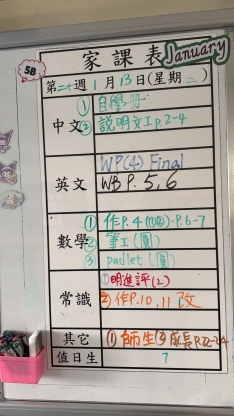 家課表
January
5B
第二十週1月13日(星期二)
中文
①自學冊
②說明文工p.2-4
英文
WP(4) Final
WB P. 5, 6
數學
①作P.4 ·P.6-7
②筆工(圓)
③padlet (圓)
常識
①明進評(2)
②作P.10,11 改
其它
①師生②成長P.22-24
值日生
7